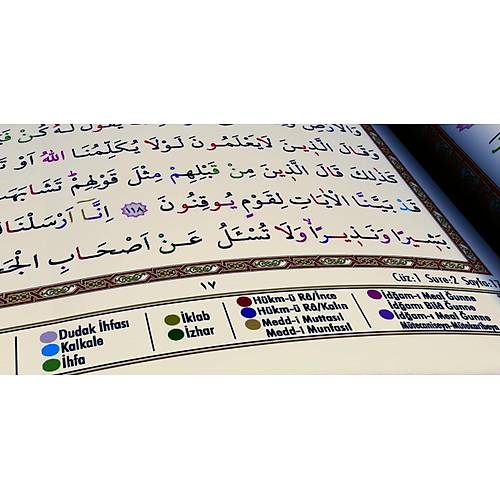 وَالْاَرْضِ يَقُولُ لَهُ كُنْ
وَقَالَ الَّذ۪ينَ لَا يَعْلَمُونَ لَوْلَا يُكَلِّمُنَا اللّٰهُ اَوْ
كَذٰلِكَ قَالَ الَّذ۪ينَ مِنْ قَبْلِهِمْ مِثْلَ قَوْلِهِمْ تَشَابَهَتْ
قَدْ بَيَّنَّا الْاٰيَاتِ لِقَوْمٍ يُوقِنُونَ ﴿١١٨﴾ اِنَّٓا اَرْسَلْنَا
بَش۪يرًا وَنَذ۪يرًاۙ وَلَا تُسْـَٔلُ عَنْ اَصْحَابِ
١٧
Cüz:1 Sure:2 Sayfa:17
Dudak İhfası
Kalkale
İhfa
İklab
İzhar
Hükm-ü Râ/İnce
Hükm-ü Râ/Kalın
Medd-i Muttasıl
Medd-i Munfasıl
İdğam-ı Meal Ğunne
İdğam Bilâ Ğunne
İdğam-ı Meal Ğunne